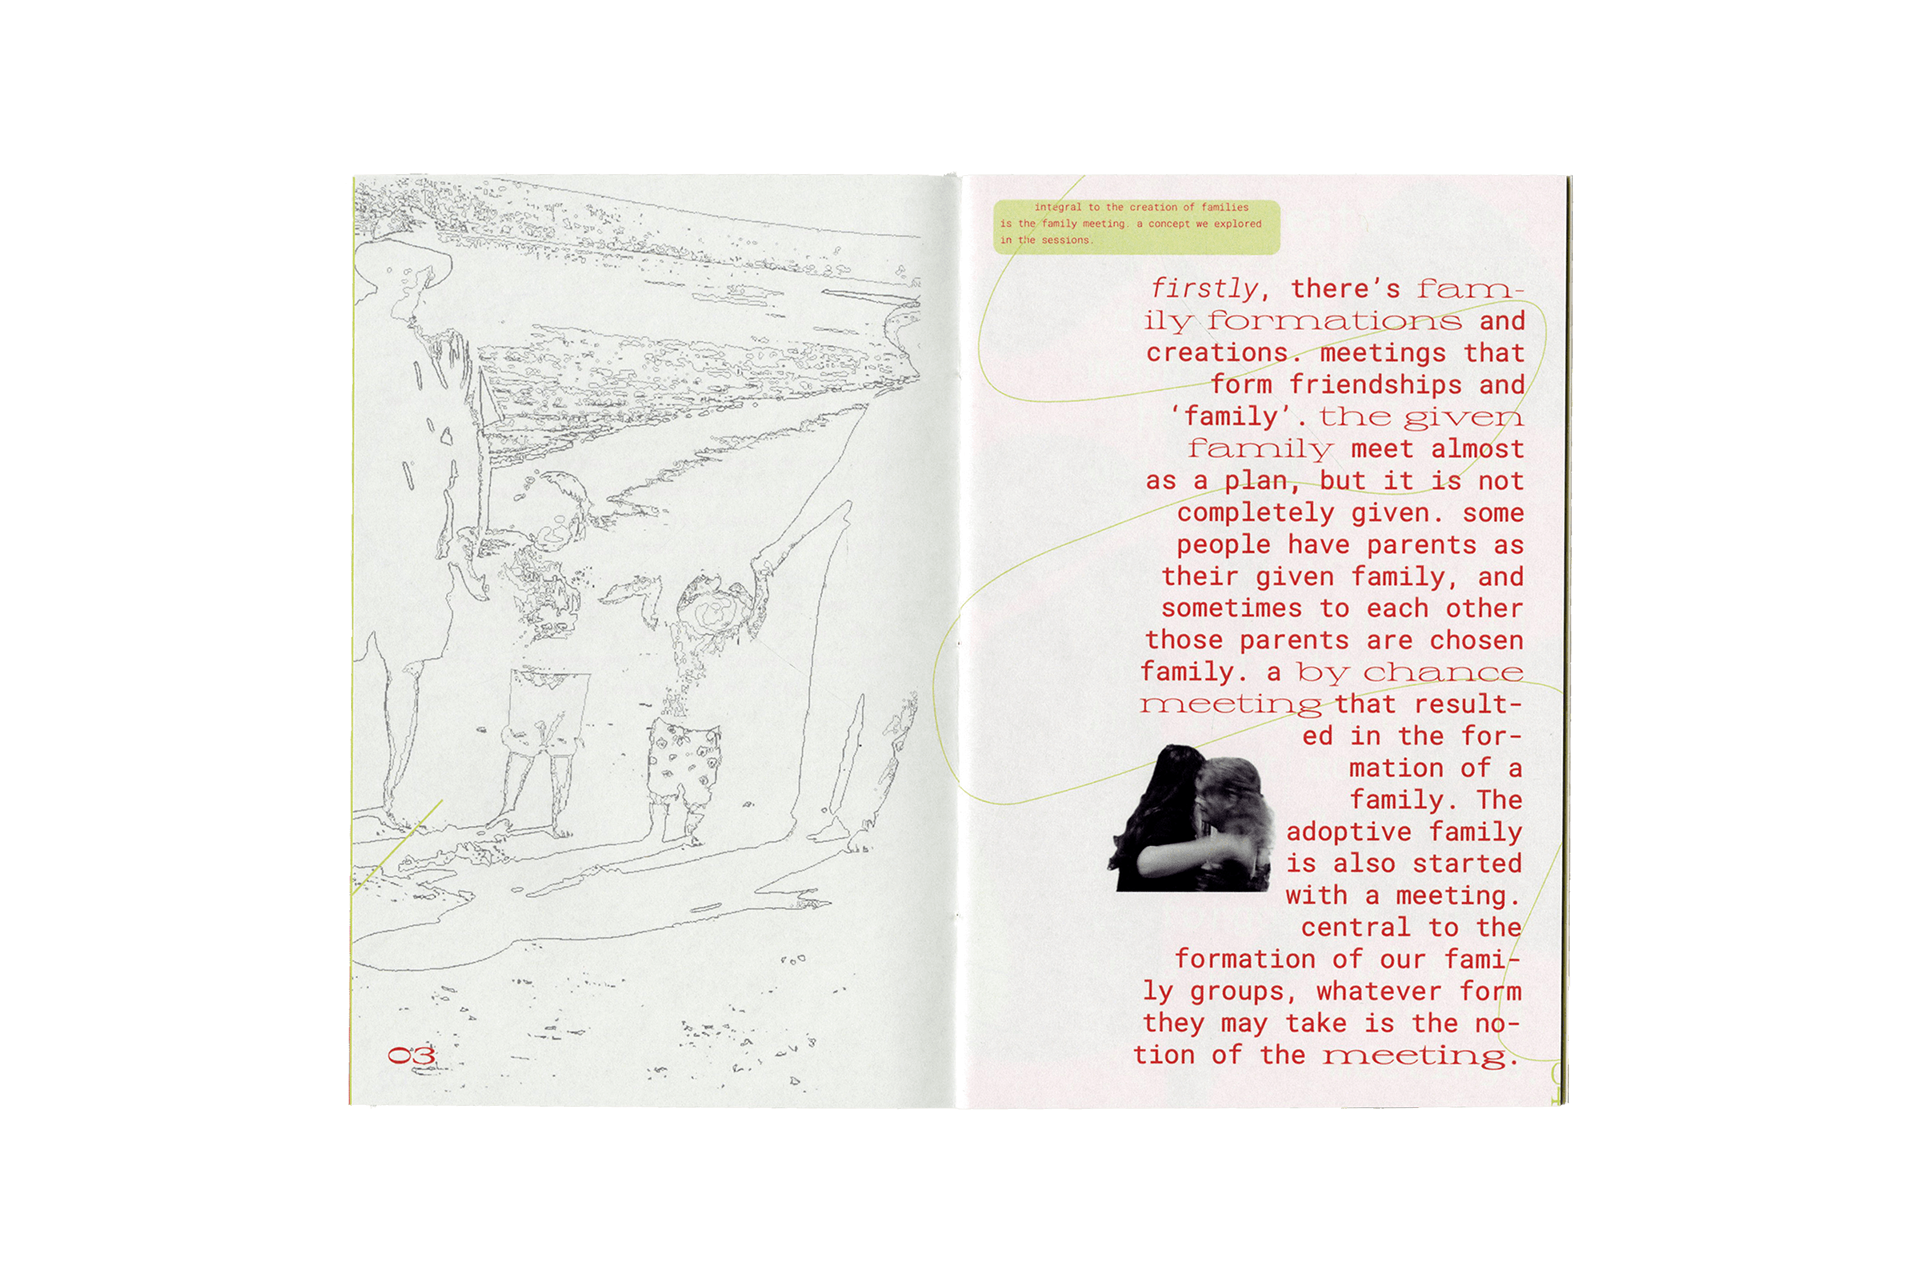 03
integral to the creation of families
is the family meeting. a concept we explored
in the sessions.
firstly, there’s fam-
ily formations and
creations. meetings that
form friendships and
‘family’. the given
family meet almost
as a plan, but it is not
completely given. some
people have parents as
their given family, and
sometimes to each other
those parents are chosen
family. a by chance
meeting that result-
ed in the for-
mation of a
family. The
adoptive family
is also started
with a meeting.
central to the
formation of our fami-
ly groups, whatever form
they may take is the no-
tion of the meeting.